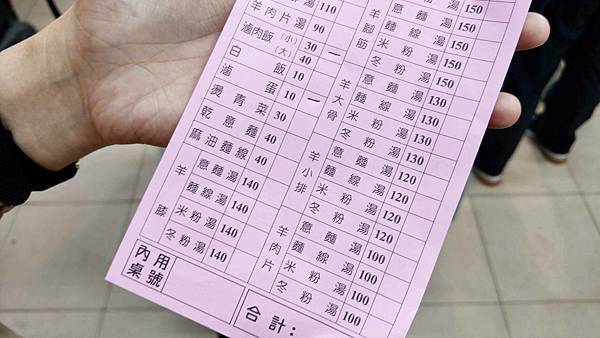 湯 110
羊肉片湯 90
滷肉飯 (小) 30 一
(大) 40
白飯 10
滷蛋 10 一
燙青菜 30
乾意麵 40
麻油麵線 40
羊膝
意麵湯 140
麵線湯 140
米粉湯 140
冬粉湯 140
內用桌號
羊腳筋
意麵湯 150
麵線湯 150
米粉湯 150
冬粉湯 150
羊大骨
意麵湯 130
麵線湯 130
米粉湯 130
冬粉湯 130
羊小排
意麵湯 120
麵線湯 120
米粉湯 120
冬粉湯 120
羊肉片
意麵湯 100
麵線湯 100
米粉湯 100
冬粉湯 100
合計：